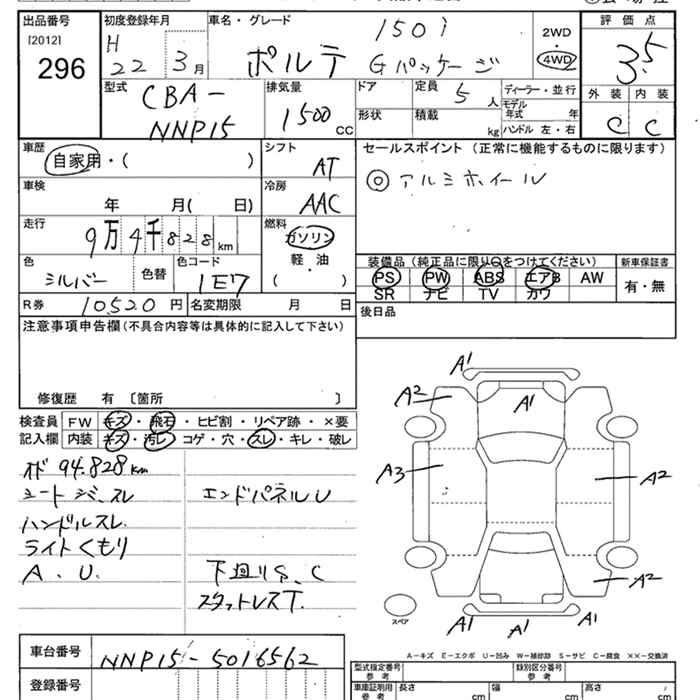 出品番号
[2012]
296
初度登録年月
H 22 3月
車名・グレード
150i
ポルテ Gパッケージ
2WD
・
4WD
評価点
3.5
外装 内装
C C
型式
CBA-
NNP15
排気量
1500 cc
ドア
形状
定員 5 人
積載 kg
ディーラー・並行
モデル
年式 年
ハンドル 左・右
車歴
自家用・( )
シフト
AT
車検
年 月( 日)
冷房
AAC
走行
9万4千828km
燃料
ガソリン
軽・油
( )
色
シルバー
色替
色コード
1E7
R券 10520円
名変期限 月 日
セールスポイント(正常に機能するものに限ります)
◎アルミホイール
装備品(純正品に限り○をつけてください)
PS PW ABS エアB AW
SR ナビ TV カワ
新車保証書
有・無
後日品
注意事項申告欄(不具合内容等は具体的に記入して下さい)
修復歴 有〔箇所 〕
検査員
記入欄
FW キズ・飛石・ヒビ割・リペア跡・×要
内装 キズ・汚レ・コゲ・穴・スレ・キレ・破レ
オド 94.828km
シートジ、スレ
エンドパネルU
ハンドルスレ
ライトくもり
A.U.
下回りS、C
スタットレスT.
A1
A2
A1
A3
A2
A2
A1
A1
A1
スペア
A-キズ E-エクボ U-凹み W-補修跡 S-サビ C-腐食 XX-交換済
車台番号
NNP15-5016562
登録番号
型式指定番号
参考
類別区分番号
参考
車庫証明用
参考
長さ cm
幅 cm
高さ cm